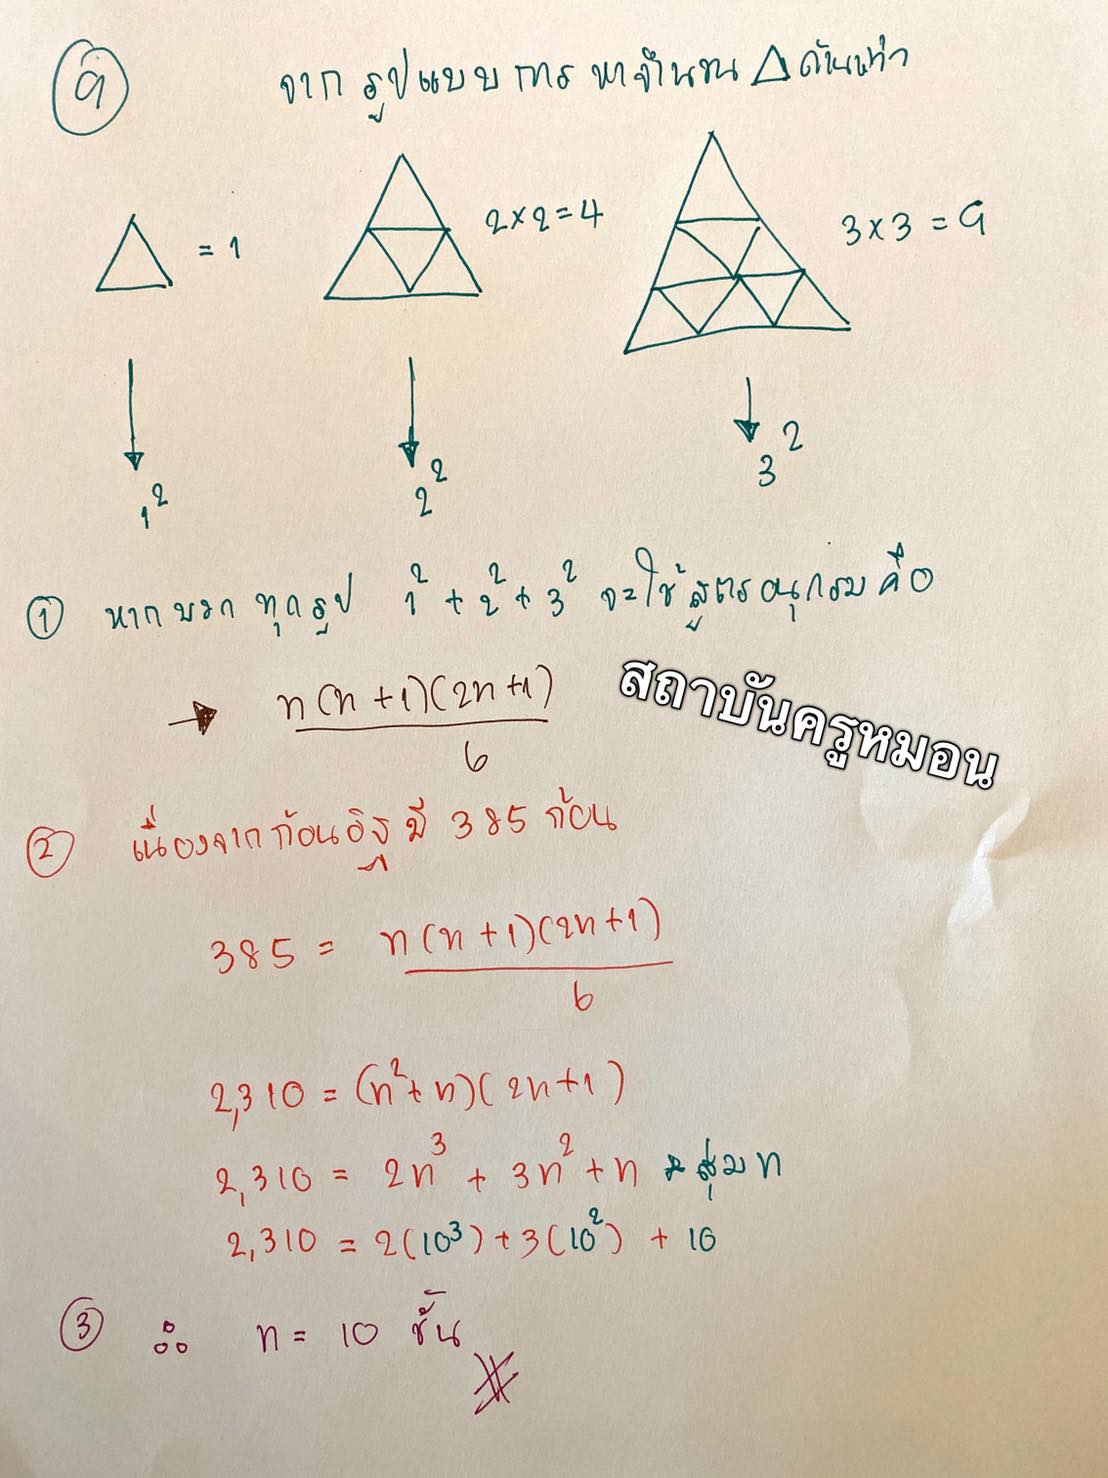 9
จาก รูปแบบ การ หาจำนวน △ ด้านเท่า
= 1
2×2=4
3×3 = 9
1²
2²
3²
① หากบวก ทุกรูป 1² + 2² + 3² จะใช้สูตรอนุกรม คือ
→ n(n+1)(2n+1)
6
สถาบันครูหมอน
② เนื่องจากก้อนอิฐ มี 385 ก้อน
385 = n(n+1)(2n+1)
6
2,310 = (n²+n)(2n+1)
2,310 = 2n³ + 3n² + n * สุ่ม n
2,310 = 2(10³) + 3(10²) + 10
③ ∴ n = 10 ชั้น